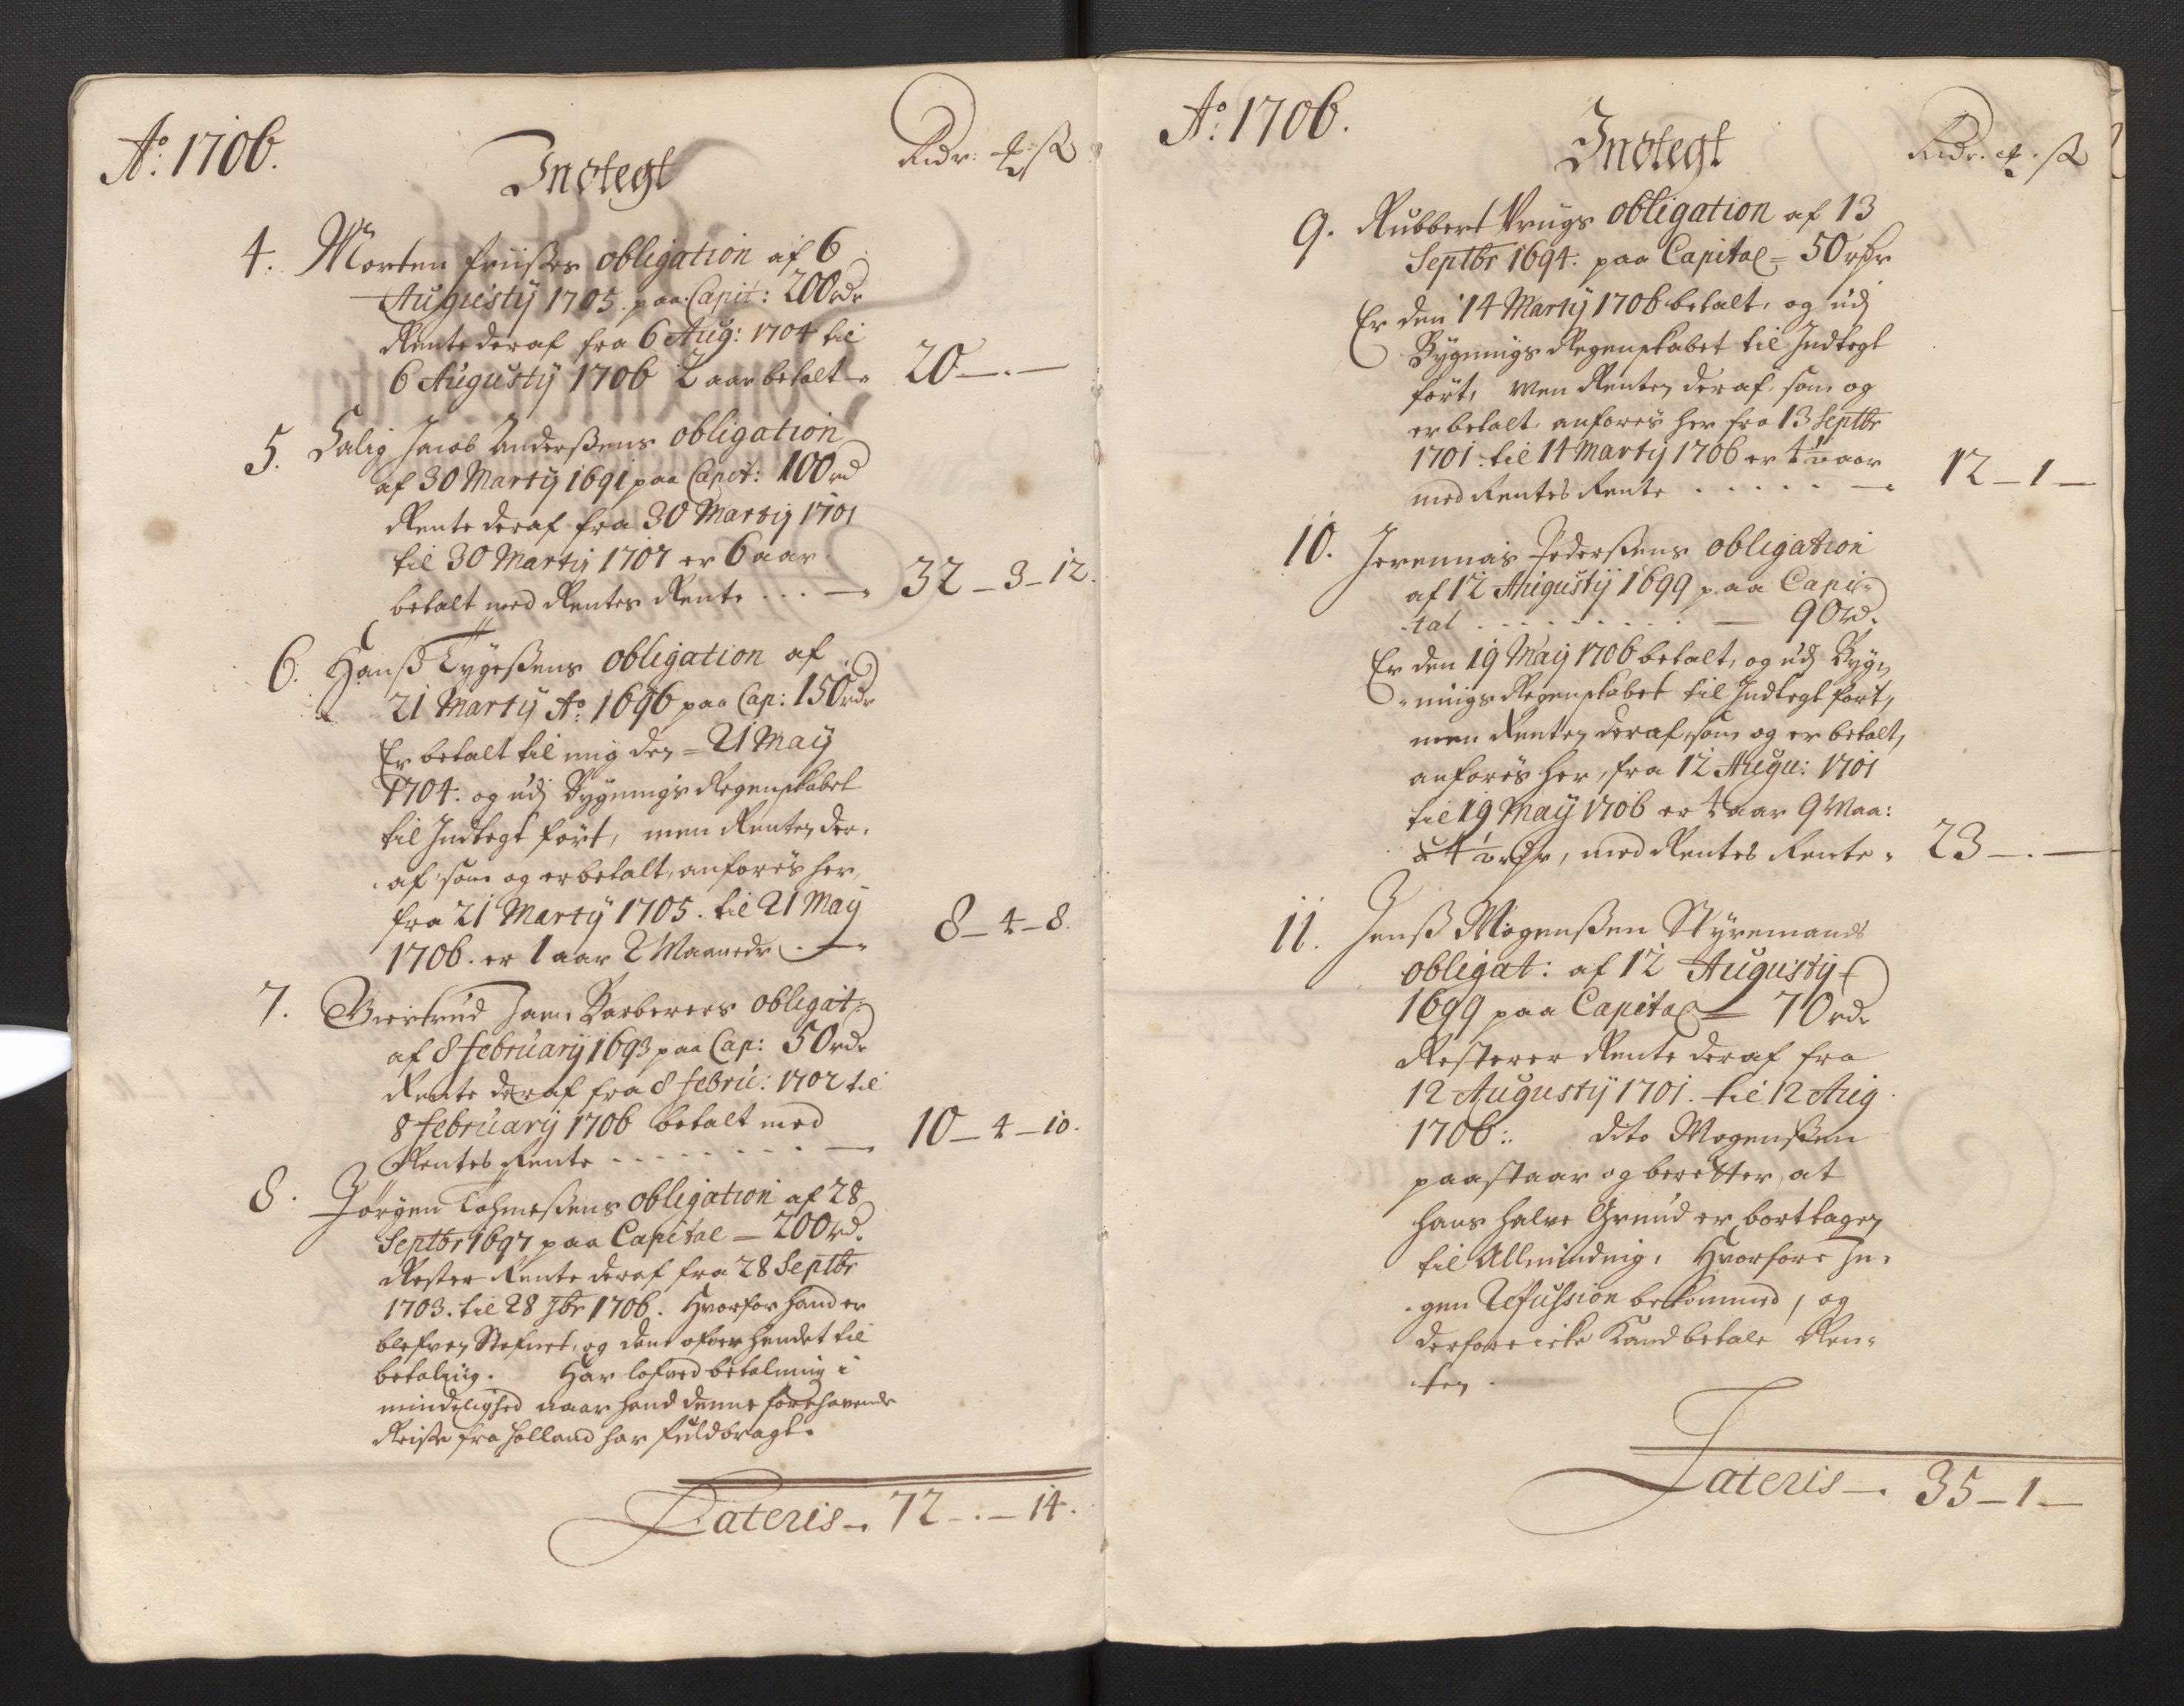 Ao: 1706.
Indtegt
Rdr: # ß
4. Morten friißes obligation af 6
Augusty 1705. paa Capit: 200rdr
Rente deraf fra 6 Aug: 1704 til
6 Augusty 1706 2 aar betalt 20 — . —
5. Salig Jacob Anderßens obligation
af 30 Marty 1691 paa Capit: 100rd
Rente deraf fra 30 Marty 1701
til 30 Marty 1707 er 6 aar
betalt med Rentes Rente . . . — 32 – 3 – 12.
6. Hanß Tygeßens obligation af
21 Marty Ao: 1696 paa Cap: 150rdr
Er betalt til mig den = 21 May
1704. og udj Bygnings Regenskabet
til Indtegt fört, men Renten der,
af som og er betalt, anföres her,
fra 21 Marty 1705. til 21 May
1706. er 1 aar 2 Maaneder . — 8 – 4 – 8.
7. Giertrud Barberers obligat:
af 8 february 1693 paa Cap: 50rdr
Rente deraf fra 8 febru: 1702 til
8 february 1706 betalt med
Rentes Rente - - - - - - - — 10 – 4 – 10.
8. Jörgen obligation af 28
Septbr 1697 paa Capital — 200rd.
Rester Rente deraf fra 28 Septbr
1703. til 28 7br 1706. Hvorfor hand er
blefven Stefnet, og dömt til
betaling. Har lofved betalning i
mindelighed naar hand denne forehavende
Reise fra Holland har fuldbragt.
Lateris —. 72 – . – 14.
Ao: 1706.
Indtegt
Rdr. # . ß
9. Rubbert Krugs obligation af 13
Septbr 1694. paa Capital = 50 rdr
Er den 14 Marty 1706 betalt, og udj
Bygnings Regenskabet til Indtegt
fört, Men Renten deraf, som og
er betalt, anföres her fra 13 Septbr
1701. til 14 Marty 1706 er 4½ aar
med Rentes Rente . . . . . — 12 – 1 –
10. Jeremias Pederßens obligation
af 12 Augusty 1699 paa Capi=
tal . . . . . . . . — 90rd.
Er den 19 May 1706 betalt, og udj Byg,
nings Regenskabet til Indtegt fört,
men Renten deraf, som og er betalt,
anföres her, fra 12 Augu: 1701
til 19 May 1706 er 4 aar 9 Maa:
a 4½ rdr, med Rentes Rente . 23 – . –
11. Jenß Mogenßen Styremands
obligat: af 12 Augusty
1699 paa Capital — 70rdr
Resterer Rente deraf fra
12 Augusty 1701. til 12 Aug
1706:. dito Mogenßen
paastaar og beretter, at
hans halve Grund er borttagen
til Allminding, Hvorfore In,
gen Refussion bekommed, og
derfore icke Kand betale Ren,
ten .
Lateris —. 35 – 1 –